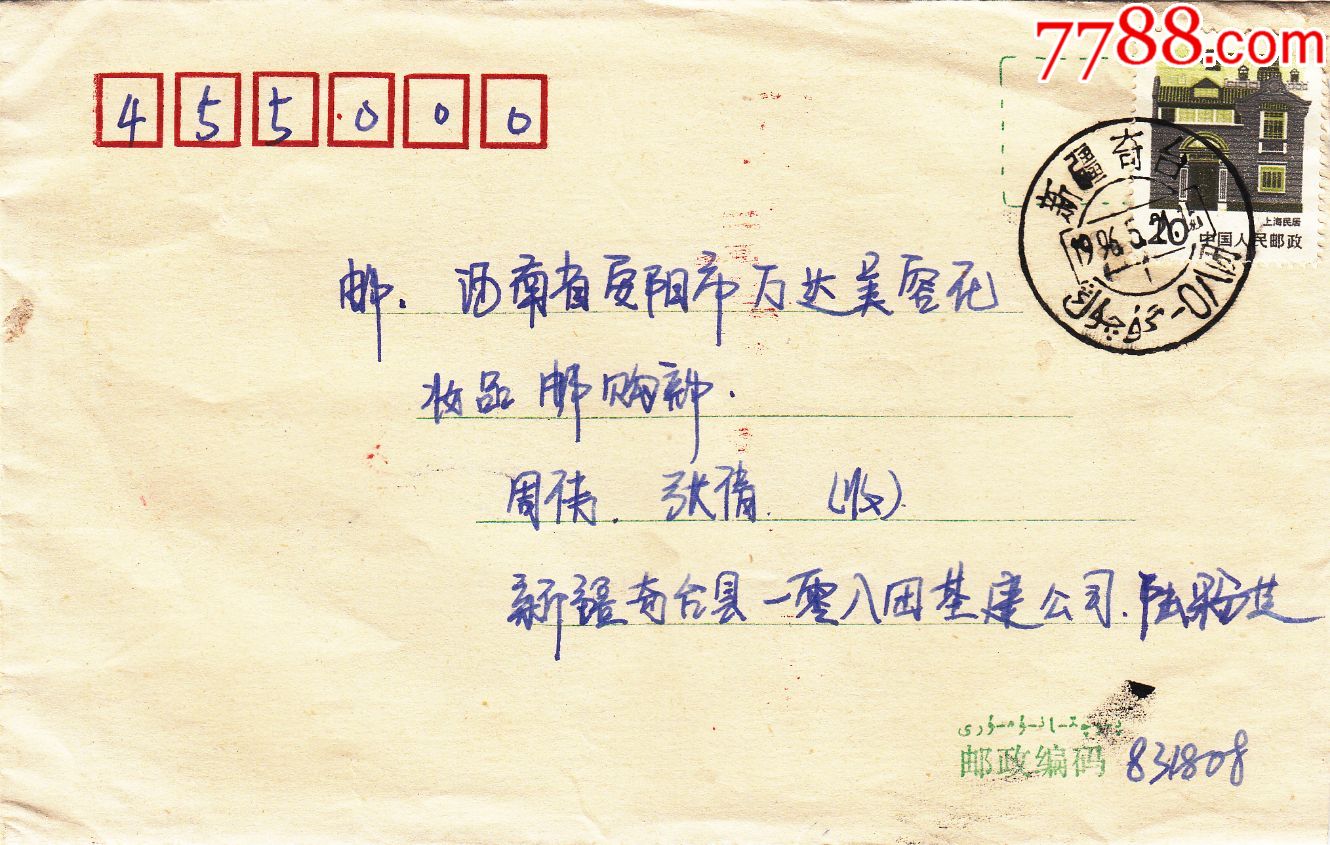 7788.com
455000
上海民居
中国人民邮政
新疆奇台
1996.5.
邮. 河南省安阳市万达美容化
妆品邮购部.
周倩. 张倩. (收).
新疆奇台县一零八团基建公司. 陆
邮政编码 831808